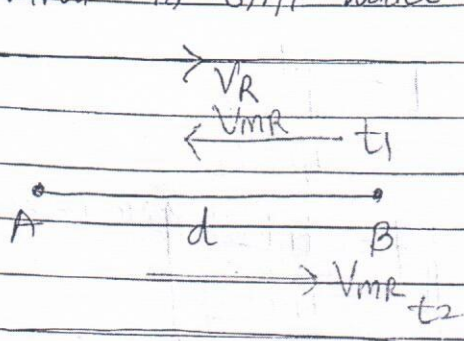 VR
VMR t1
A d B
VMR t2